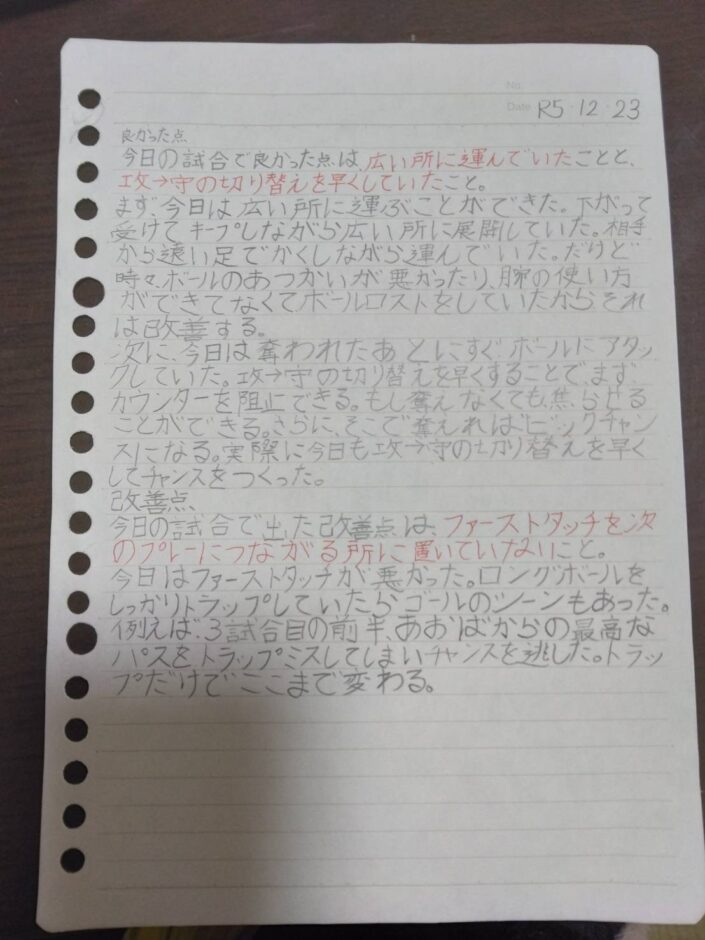 No.
Date R5・12・23
良かった点
今日の試合で良かった点は、広い所に運んでいたことと、
攻→守の切り替えを早くしていたこと。
まず、今日は広い所に運ぶことができた。下がって
受けてキープしながら広い所に展開していた。相手
から遠い足でかくしながら運んでいた。だけど
時々、ボールのあつかいが悪かったり、腕の使い方
ができてなくてボールロストをしていたからそれ
は改善する。
次に、今日は奪われたあとにすぐボールにアタッ
クしていた。攻→守の切り替えを早くすることで、まず、
カウンターを阻止できる。もし奪えなくても、焦らせる
ことができる。さらに、そこで奪えればビックチャン
スになる。実際に今日も攻→守の切り替えを早く
してチャンスをつくった。
改善点
今日の試合で出た改善点は、ファーストタッチを次
のプレーにつながる所に置いていないこと。
今日はファーストタッチが悪かった。ロングボールを
しっかりトラップしていたらゴールのシーンもあった。
例えば、3試合目の前半、あおばからの最高な
パスをトラップミスしてしまいチャンスを逃した。トラッ
プだけでここまで変わる。